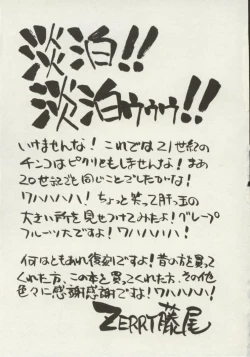 淡泊!!
淡泊ゥゥゥ!!
いけませんな! これでは21世紀の
チンコはピクリともしませんな! まあ
20世紀でも同じことでしたがな!
ワハハハハ! ちょっと笑って肝っ玉の
大きい所を見せつけてみたよ! グレープ
フルーツ大ですよ! ワハハハハ!
何はともあれ復刻ですよ! 昔の方を買って
くれた方、この本を買ってくれた方、その他
色々に感謝感謝ですな! ワハハハハ!
ZERRY藤尾